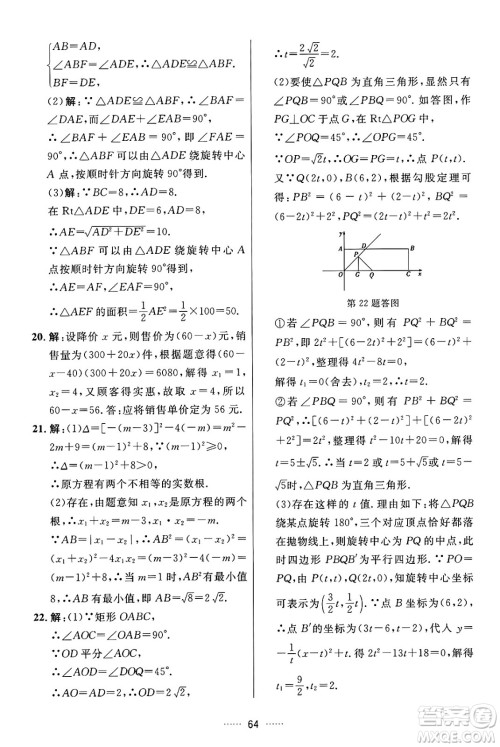 AB=AD,
∠ABF=∠ADE, ∴△ADE≌△ABF.
BF=DE,
(2)解:∵△ADE≌△ABF,∴∠BAF
=∠DAE,而∠DAE+∠EAB=90°,
∴∠BAF+∠EAB=90°,即∠FAE=
90°,∴△ABF可以由△ADE绕旋转中心
A点,按顺时针方向旋转90°得到.
(3)解:∵BC=8,∴AD=8.
在Rt△ADE中,DE=6,AD=8,
∴AE=√(AD²+DE²)=10.
∵△ABF可以由△ADE绕旋转中心A点
按顺时针方向旋转90°得到,
∴AE=AF,∠EAF=90°,
∴△AEF的面积=1/2AE²=1/2×100=50.
20. 解:设降价x元,则售价为(60-x)元,销
售量为(300+20x)件,根据题意得(60-x
-40)(300+20x)=6 080,解得x₁=1,
x₂=4,又顾客得实惠,故取x=4,即定价为
60-x=56.答:应将销售单价定为56元.
21. 解:(1)Δ=[-(m-3)]²-4(-m)=m²-
2m+9=(m-1)²+8,∵(m-1)²≥0,
∴Δ=(m-1)²+8>0,
∴原方程有两个不相等的实数根.
(2)存在,由题意知x₁,x₂是原方程的两
根,∴x₁+x₂=m-3,x₁·x₂=-m.
∵AB=|x₁-x₂|,∴AB²=(x₁-x₂)²=
(x₁+x₂)²-4x₁x₂=(m-3)²-4(-m)=
(m-1)²+8,∴当m=1时,AB²有最小值
8,∴AB有最小值,即AB=√8=2√2.
22. 解:(1)∵矩形OABC,
∴∠AOC=∠OAB=90°.
∵OD平分∠AOC,
∴∠AOD=∠DOQ=45°.
∴AO=AD=2,OD=2√2,
∴t=2√2/√2=2.
(2)要使△PQB为直角三角形,显然只有
∠PQB=90°或∠PBQ=90°.如答图,作
PG⊥OC于点G,在Rt△POG中,
∵∠POQ=45°,∴∠OPG=45°.
∵OP=√2t,∴OG=PG=t,∴点P(t,t).
又∵Q(2t,0),B(6,2),根据勾股定理可
得:PB²=(6-t)²+(2-t)²,BQ²=
(6-2t)²+2²,PQ²=(2t-t)²+t²=2t².
y
A
D
B
P
O
G
Q
C
x
第22题答图
①若∠PQB=90°,则有PQ²+BQ²=
PB²,即2t²+[(6-2t)²+2²]=(6-t)²+
(2-t)²,整理得4t²-8t=0,
解得t₁=0(舍去),t₂=2,∴t=2.
②若∠PBQ=90°,则有PB²+BQ²=
PQ²,∴[(6-t)²+(2-t)²]+[(6-2t)²+
2²]=2t²,整理得t²-10t+20=0,解得
t=5±√5.∴当t=2或t=5+√5或
t=5-√5时,△PQB为直角三角形.
(3)存在这样的t值.理由如下:将△PQB
绕某点旋转180°,三个对应顶点恰好都落
在抛物线上,则旋转中心为PQ中点,此
时四边形PBQB′为平行四边形.∵PO=
PQ,由P(t,t),Q(2t,0),知旋转中心坐标
可表示为(3/2t,1/2t),∵点B坐标为(6,2),
∴点B′的坐标为(3t-6,t-2),代入y=
-1/t(x-t)²+t,得2t²-13t+18=0,解得
t₁=9/2,t₂=2.
64